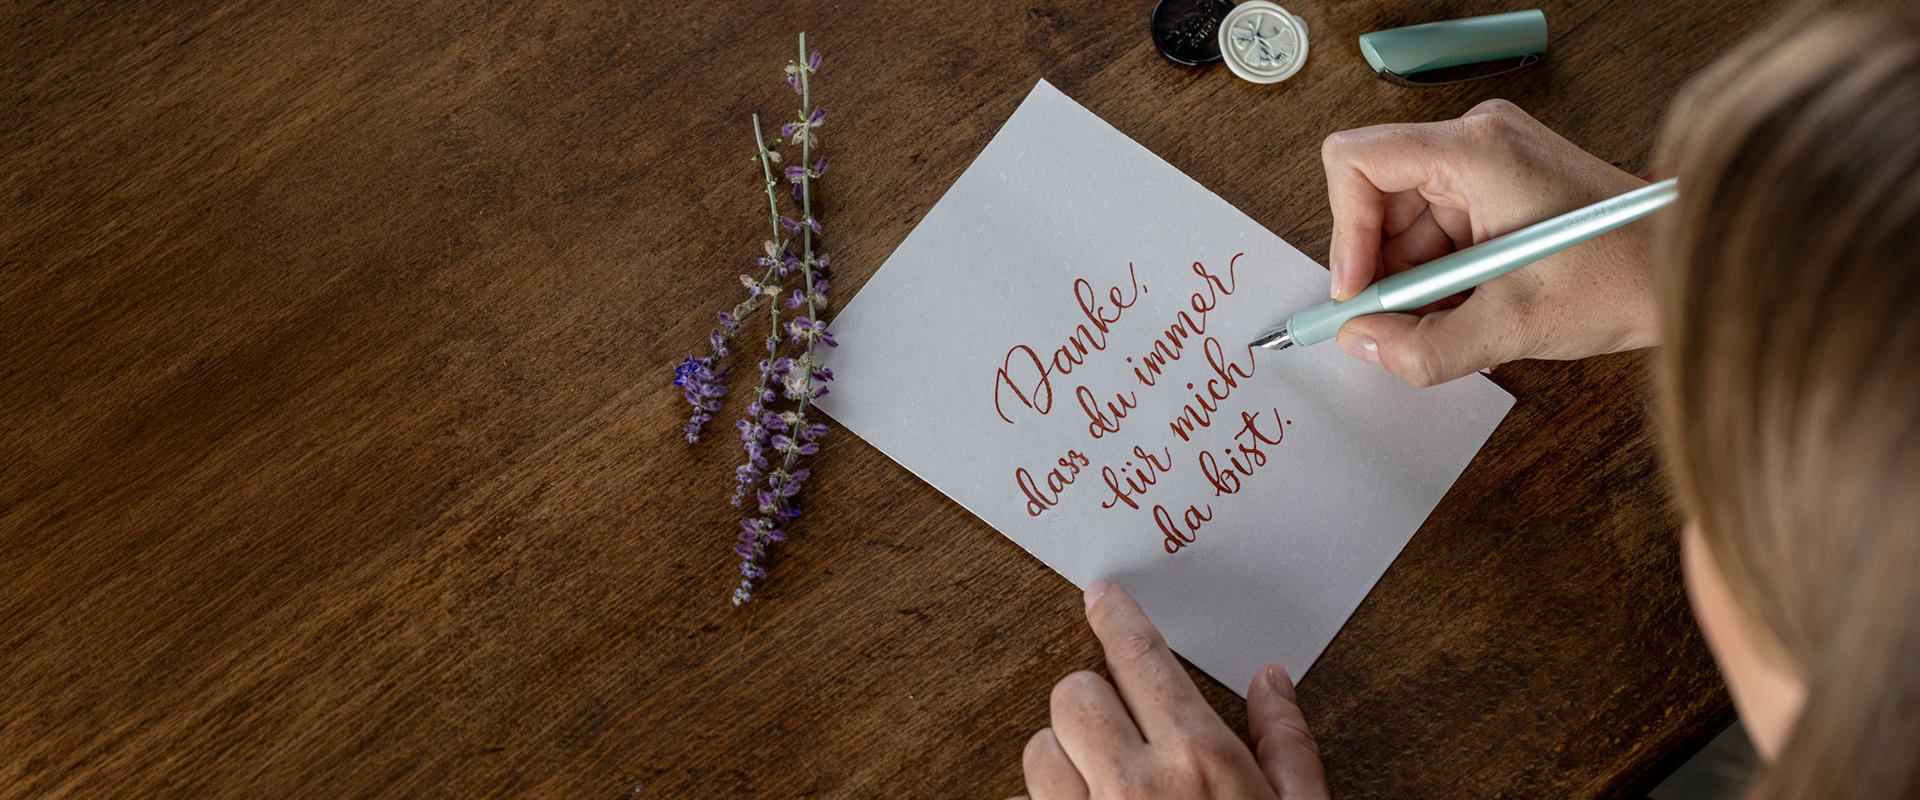 Danke,
dass du immer
für mich
da bist.